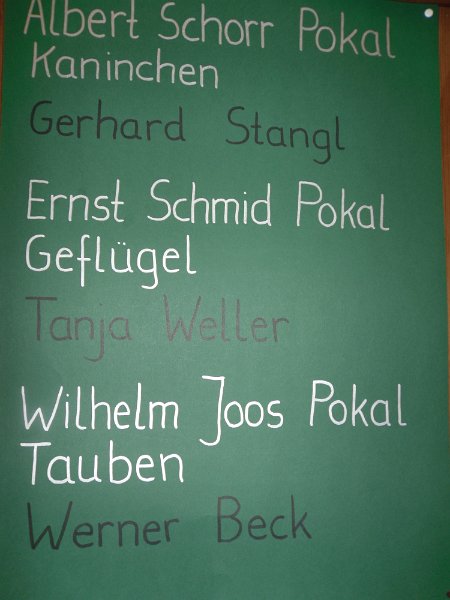 Albert Schorr Pokal
Kaninchen
Gerhard Stangl
Ernst Schmid Pokal
Geflügel
Tanja Weller
Wilhelm Joos Pokal
Tauben
Werner Beck